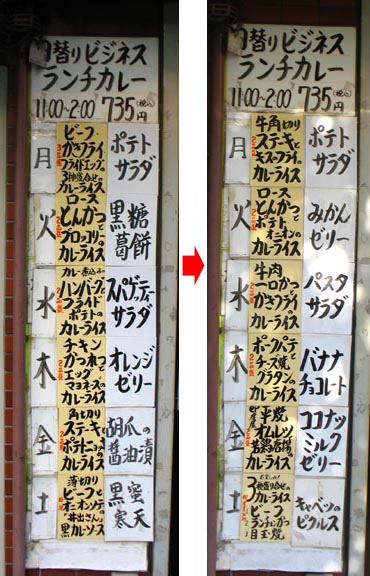 日替りビジネス
ランチカレー
11:00~2:00 735円(税込)
月
ビーフ
かきフライ
フライドエッグの
3種盛合せの
カレーライス
ポテト
サラダ
火
ロース
とんかつと
ブロッコリーの
カレーライス
黒糖
葛餅
水
カレー煮込み
ハンバーグと
フライド
ポテトの
カレーライス
スパゲッティ
サラダ
木
チキン
かつ
エッグ
マヨネーズの
カレーライス
オレンジ
ゼリー
金
角切り
ステーキと
ポテト
カレーライス
胡瓜の
醤油漬
土
薄切り
ビーフと
オニオンソテー
黒カレーソース
黒蜜
寒天
日替りビジネス
ランチカレー
11:00~2:00 735円(税込)
月
牛角切り
ステーキと
キスフライの
カレーライス
ポテト
サラダ
火
ロース
とんかつと
ポテト
オニオンの
カレーライス
みかん
ゼリー
水
牛肉
一口かつ
かきフライの
カレーライス
パスタ
サラダ
木
ポークパテと
チーズ焼
グラタンの
カレーライス
バナナ
チョコレート
金
半熟
オムレツ
若鶏唐揚の
カレーライス
ココナッツ
ミルク
ゼリー
土
3種盛り合せの
カレーライス
ビーフ
ランチョンかつ
目玉焼
キャベツの
ピクルス